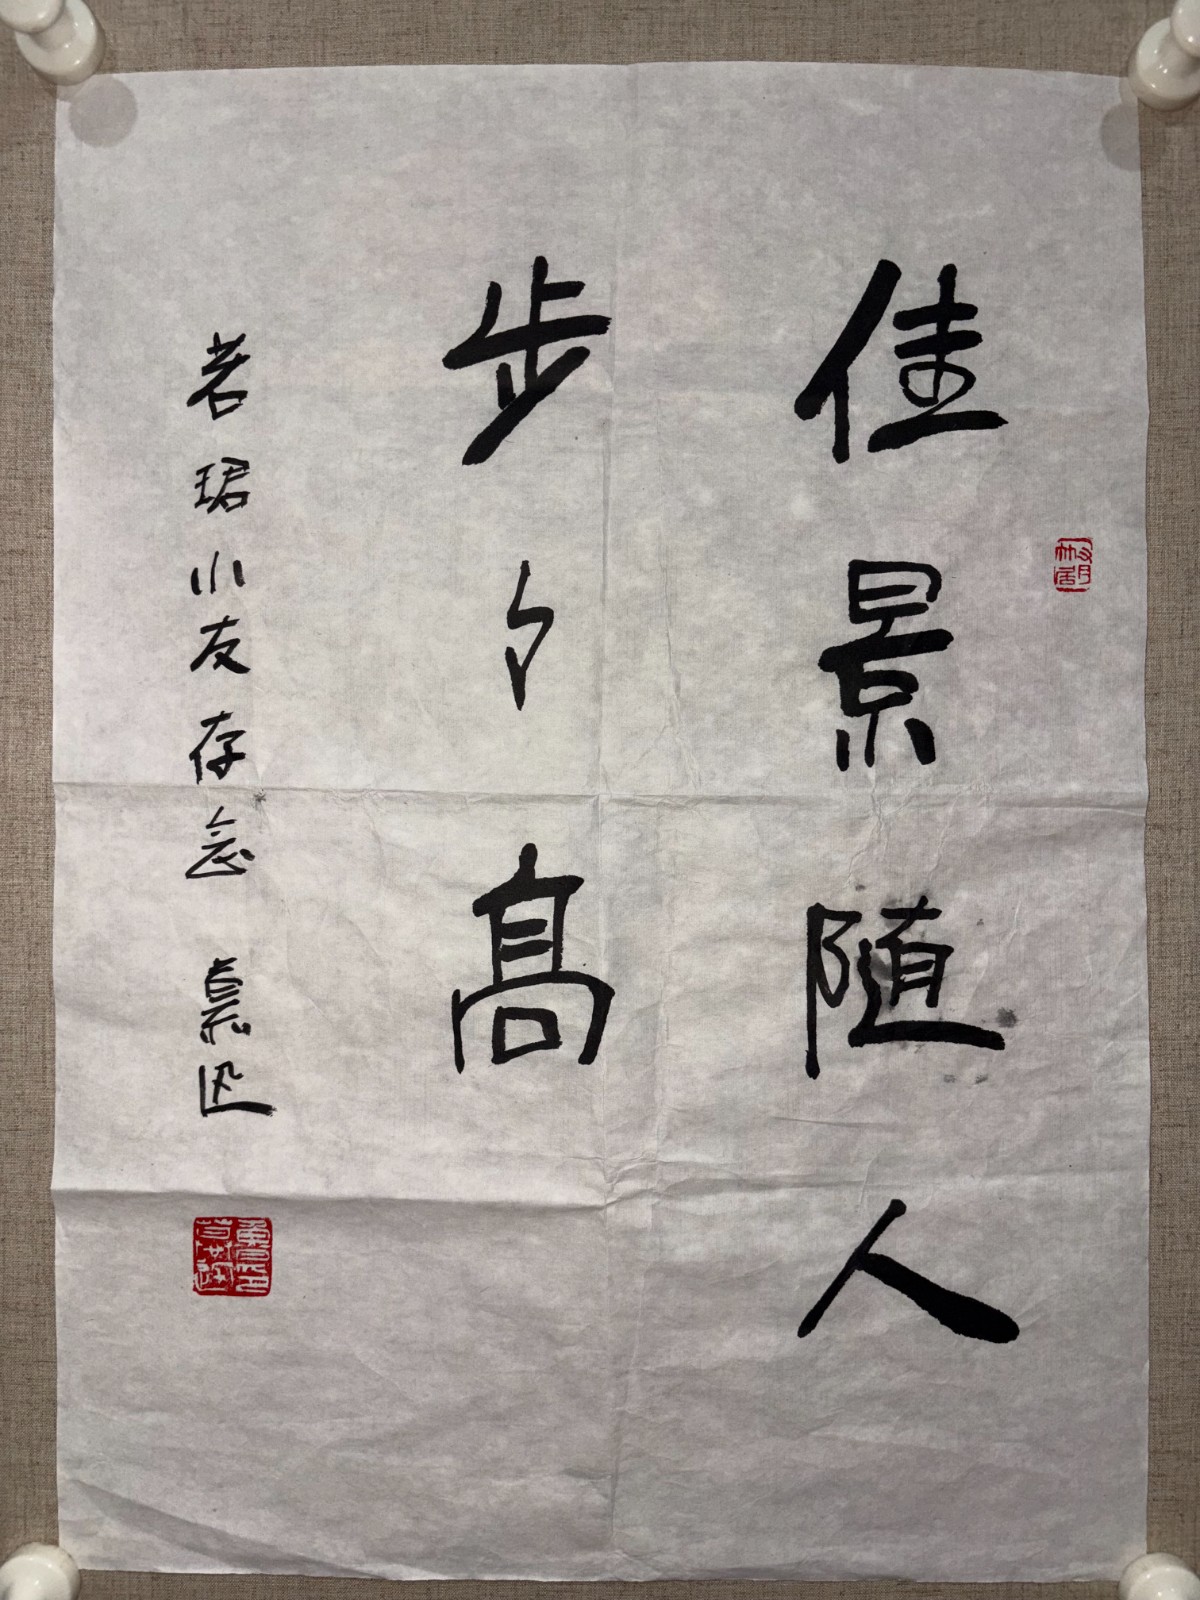 佳景随人
步々高
若珺小友存念 慕迅